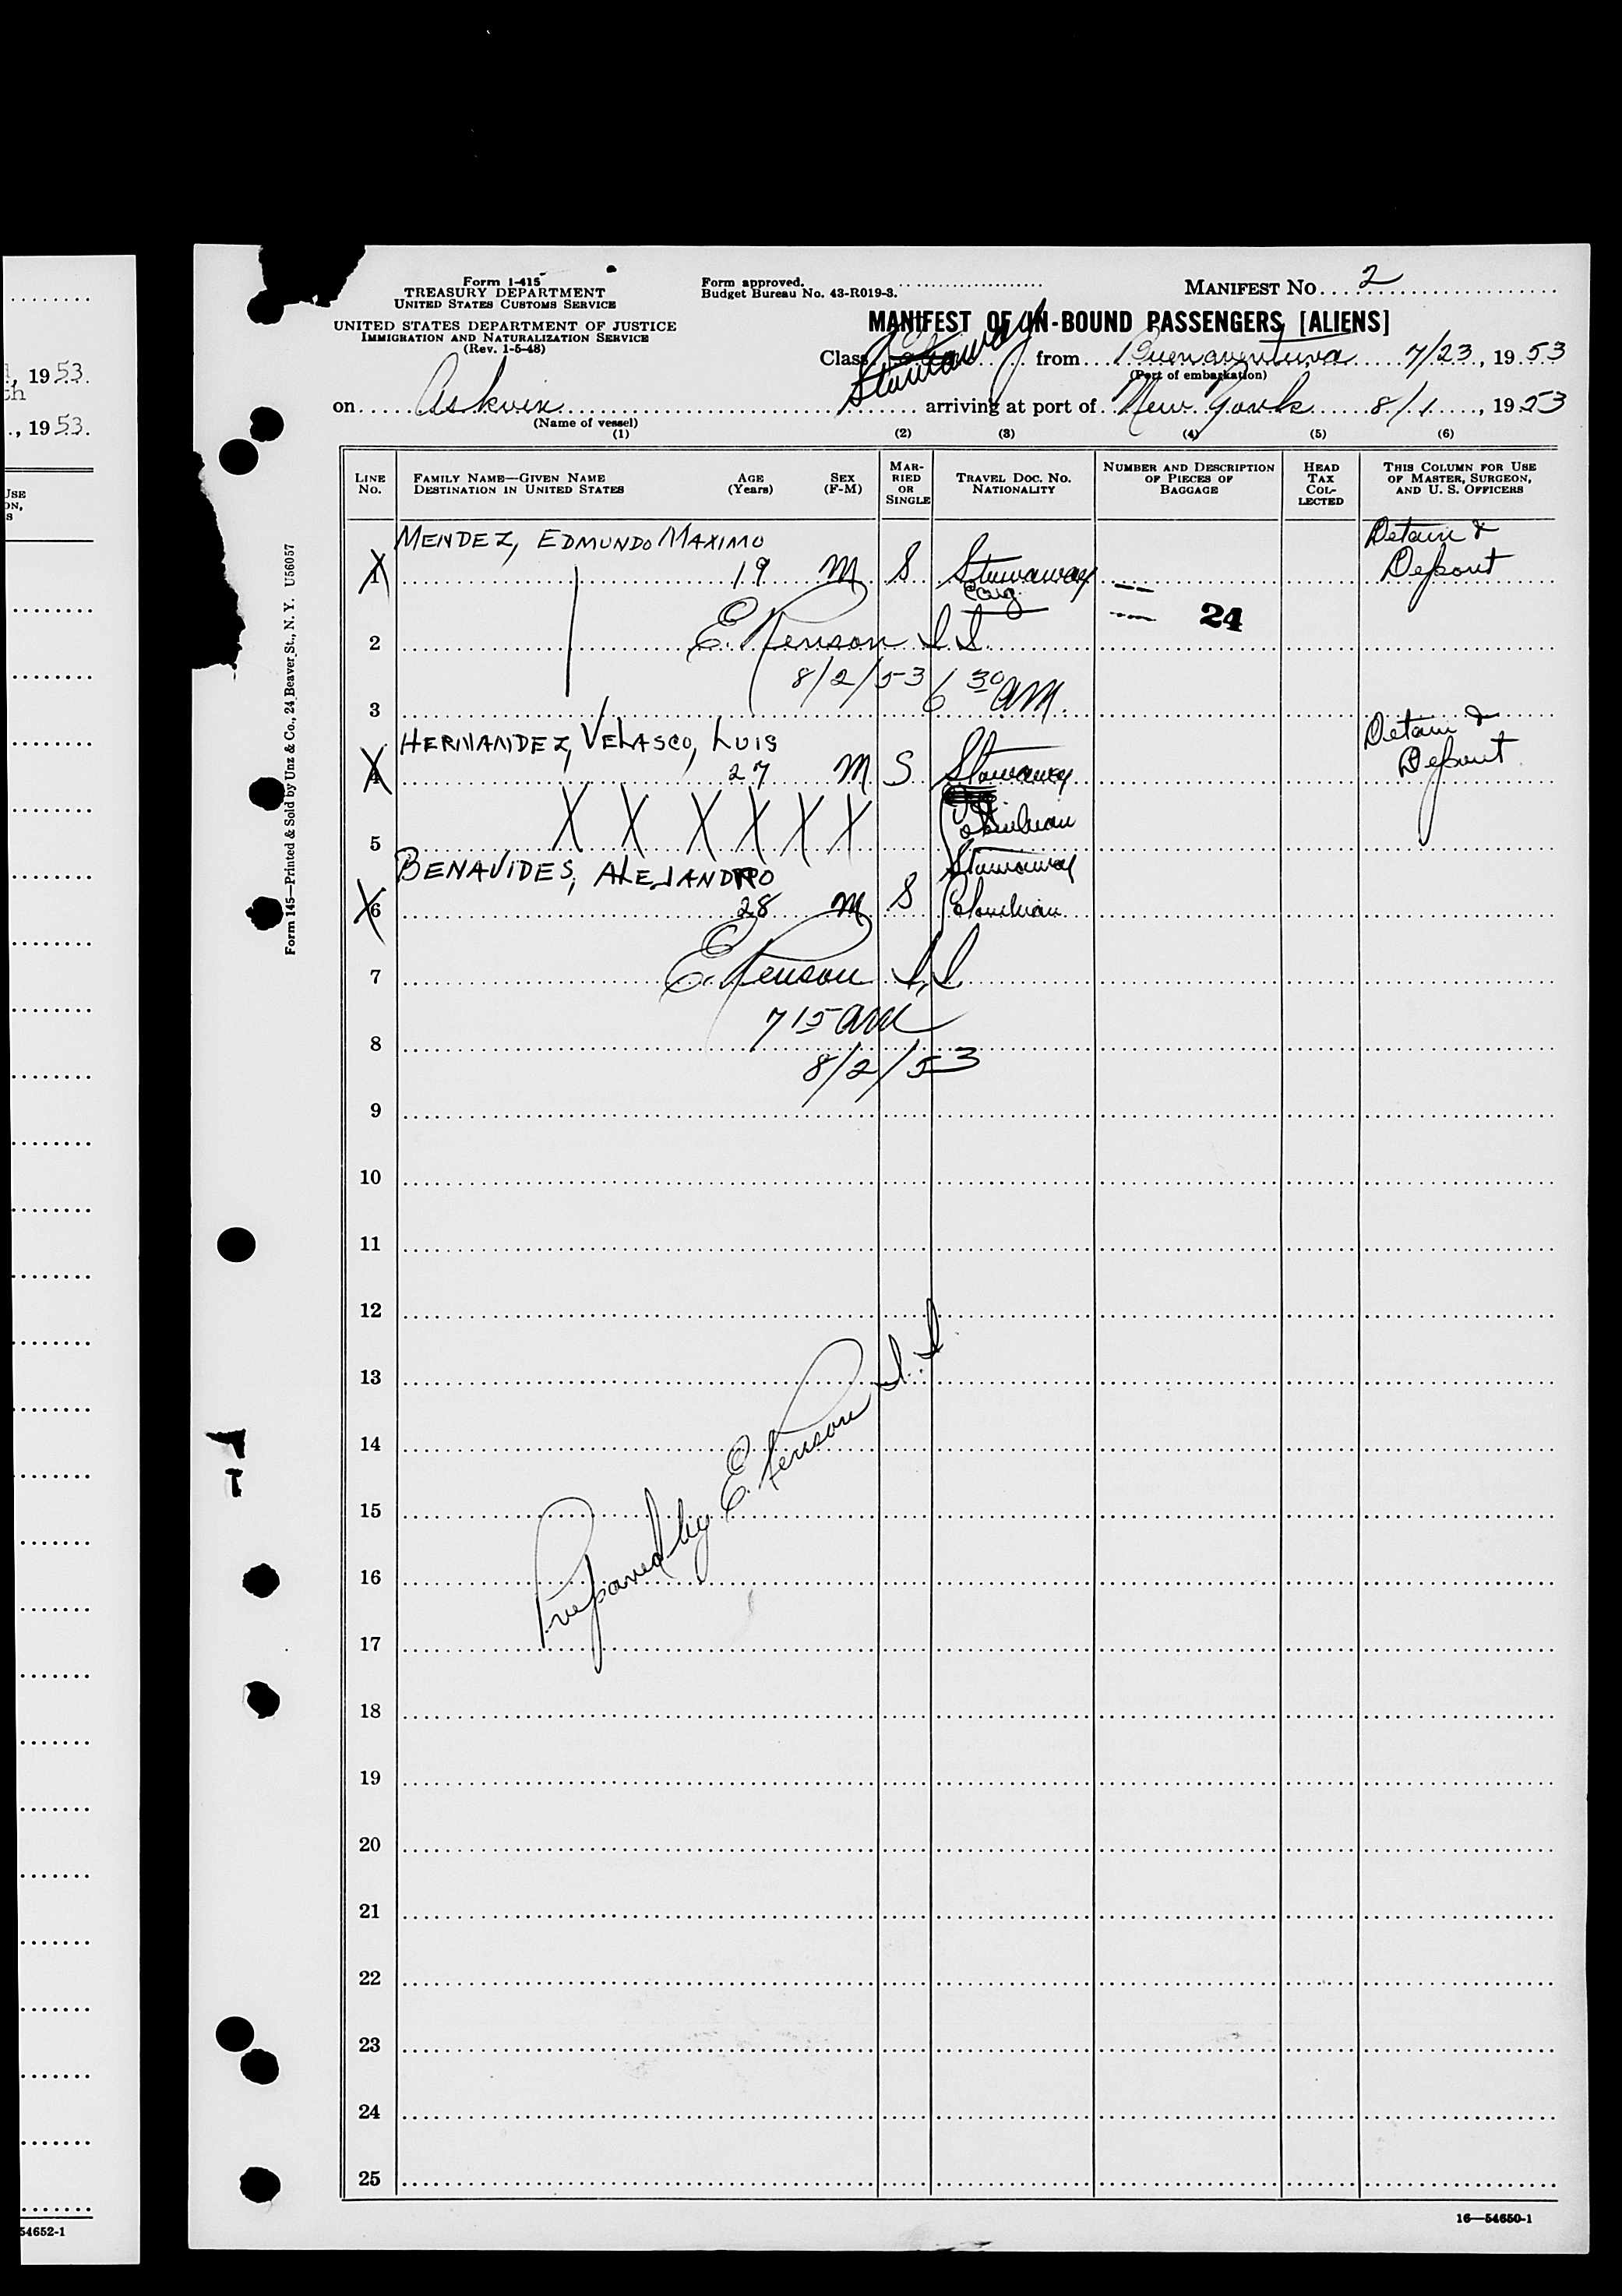 1953.
th
., 1953.
USE
ON,
S
54652-1
Form I-415
TREASURY DEPARTMENT
UNITED STATES CUSTOMS SERVICE
UNITED STATES DEPARTMENT OF JUSTICE
IMMIGRATION AND NATURALIZATION SERVICE
(Rev. 1-5-48)
Form approved.
Budget Bureau No. 43-R019-3.
MANIFEST NO. 2
MANIFEST OF IN-BOUND PASSENGERS [ALIENS]
Class Stowaway from Buenaventura 7/23, 1953
Stowaway
(Port of embarkation)
on Askvin arriving at port of New York 8/1, 1953
(Name of vessel)
(1) (2) (3) (4) (5) (6)
LINE NO. FAMILY NAME—GIVEN NAME DESTINATION IN UNITED STATES AGE (Years) SEX (F-M) MARRIED OR SINGLE TRAVEL DOC. NO. NATIONALITY NUMBER AND DESCRIPTION OF PIECES OF BAGGAGE HEAD TAX COLLECTED THIS COLUMN FOR USE OF MASTER, SURGEON, AND U. S. OFFICERS
MENDEZ, EDMUNDO MAXIMO Detain &
1 19 M S Stowaway — Deport
— 24
2 E. Kenson I I
8/2/53 6 30 AM.
3
HERNANDEZ, VELASCO, LUIS Detain &
4 27 M S Stowaway Deport
X X X X X X Colombian
5
BENAVIDES, ALEJANDRO Stowaway
6 28 M S Colombian
7 E. Kenson I. I
7 15 AM
8
8/2/53
9
10
11
12
13
14
15
16
17
Prepared by E. Kenson I. I
18
19
20
21
22
23
24
25
16—54650-1
Form 145—Printed & Sold by Unz & Co., 24 Beaver St., N. Y. U56057